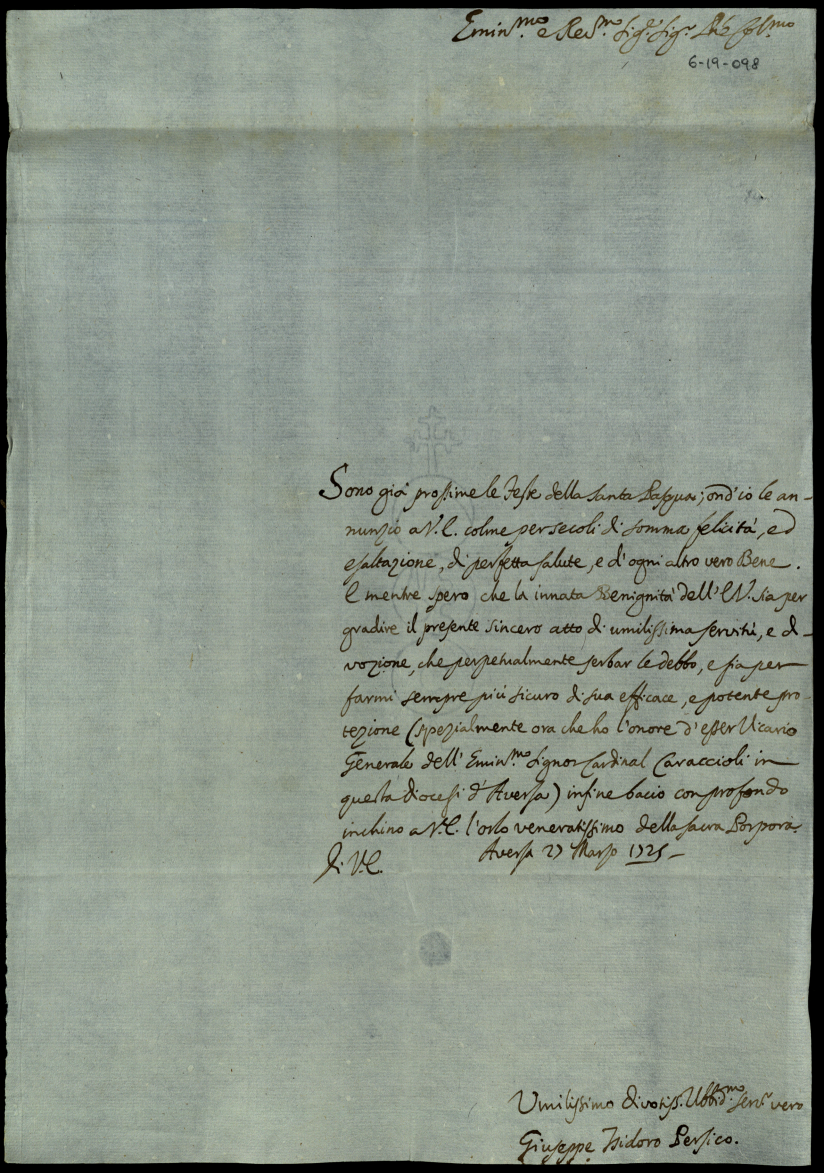 Emin.mo e Rev.mo Sig.r Sig.r P.ne Col.mo
6-19-098
Sono già prossime le Feste della Santa Pasqua; ond'io le an-
nunzio a V.E. colme per secoli di somma felicità, ed
esaltazione, di perfetta salute, e d'ogni altro vero Bene.
E mentre spero che la innata Benignità dell'E.V. sia per
gradire il presente sincero atto di umilissima servitù, e di-
vozione, che perpetualmente serbar le debbo, e sia per
farmi sempre più sicuro di sua efficace, e potente pro-
tezione (spezialmente ora che ho l'onore d'esser Vicario
Generale dell'Emin.mo Signor Cardinal Caraccioli in
questa Diocesi d'Aversa) infine bacio con profondo
inchino a V.E. l'orlo veneratissimo della sacra Porpora.
Di V.E. Aversa 27 Marzo 1725
Umilissimo Divotiss. Ubbid.mo Serv.r vero
Giuseppe Isidoro Persico.